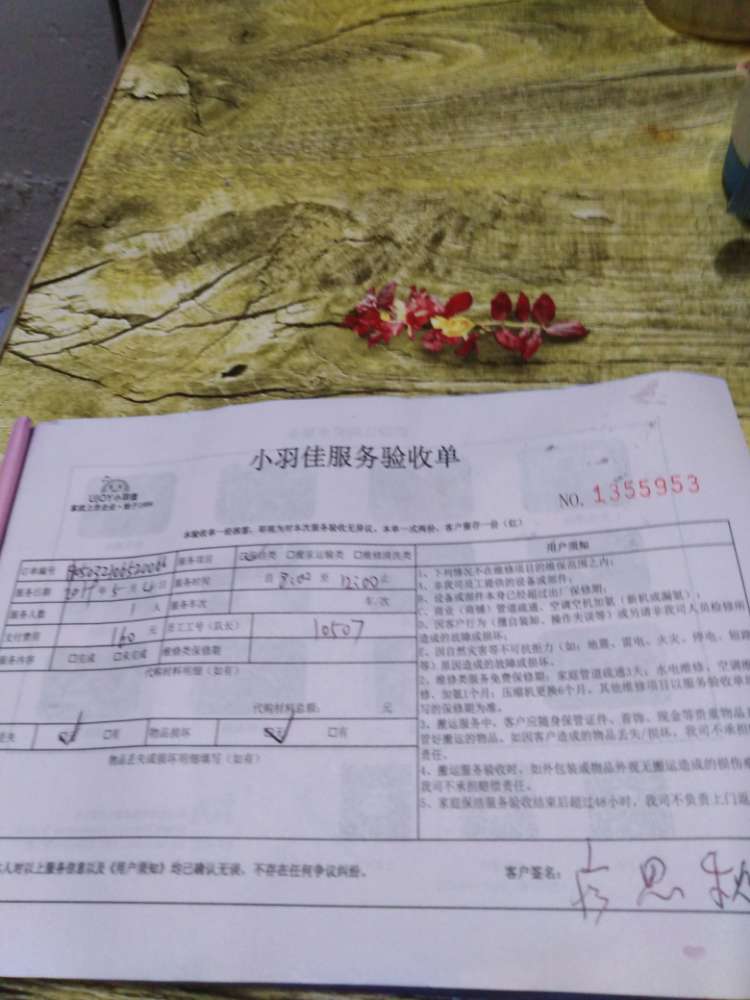 小羽佳服务验收单
UJOY小羽佳
家政上市企业·始于1999
NO. 1355953
本验收单一经签署,即视为对本次服务验收无异议。本单一式两份,客户留存一份(红)
订单编号 服务项目 保洁类 □搬家运输类 □维修清洗类
服务日期 年 5 月 日 服务时间 自 8:00 至 12:00 止
服务人数 1 人 服务车次 车/次
支付费用 160 元 员工工号(队长) 10507
服务内容 □完成 □未完成 维修类保修期
代购材料明细(如有)
代购材料总额: 元
丢失 □有 物品损坏 □有
物品丢失或损坏明细填写(如有)
用户须知
1、下列情况不在维修项目的维保范围之内:
A、非我司员工提供的设备或部件;
B、设备或部件本身已经超过出厂保修期;
C、商业(商铺)管道疏通、空调空机加氨(新机或漏氨);
D、因客户行为(擅自装卸、操作失误等)或另请非我司人员检修所
造成的故障或损坏;
E、因自然灾害等不可抗拒力(如:地震、雷电、火灾、停电、短路
等)原因造成的故障或损坏。
2、维修类服务免费保修期:家庭管道疏通3天;水电维修、空调维
修、加氨1个月;压缩机更换6个月。其他维修项目以服务验收单填
写的保修期为准。
3、搬运服务中,客户应随身保管证件、首饰、现金等贵重物品
管好搬运的物品。如因客户造成的物品丢失/损坏,我司不承担
责任。
4、搬运服务验收时,如外包装或物品外观无搬运造成的损伤
我司不承担赔偿责任。
5、家庭保洁服务验收结束后超过48小时,我司不负责上门返
人对以上服务信息以及《用户须知》均已确认无误,不存在任何争议纠纷。
客户签名: 思